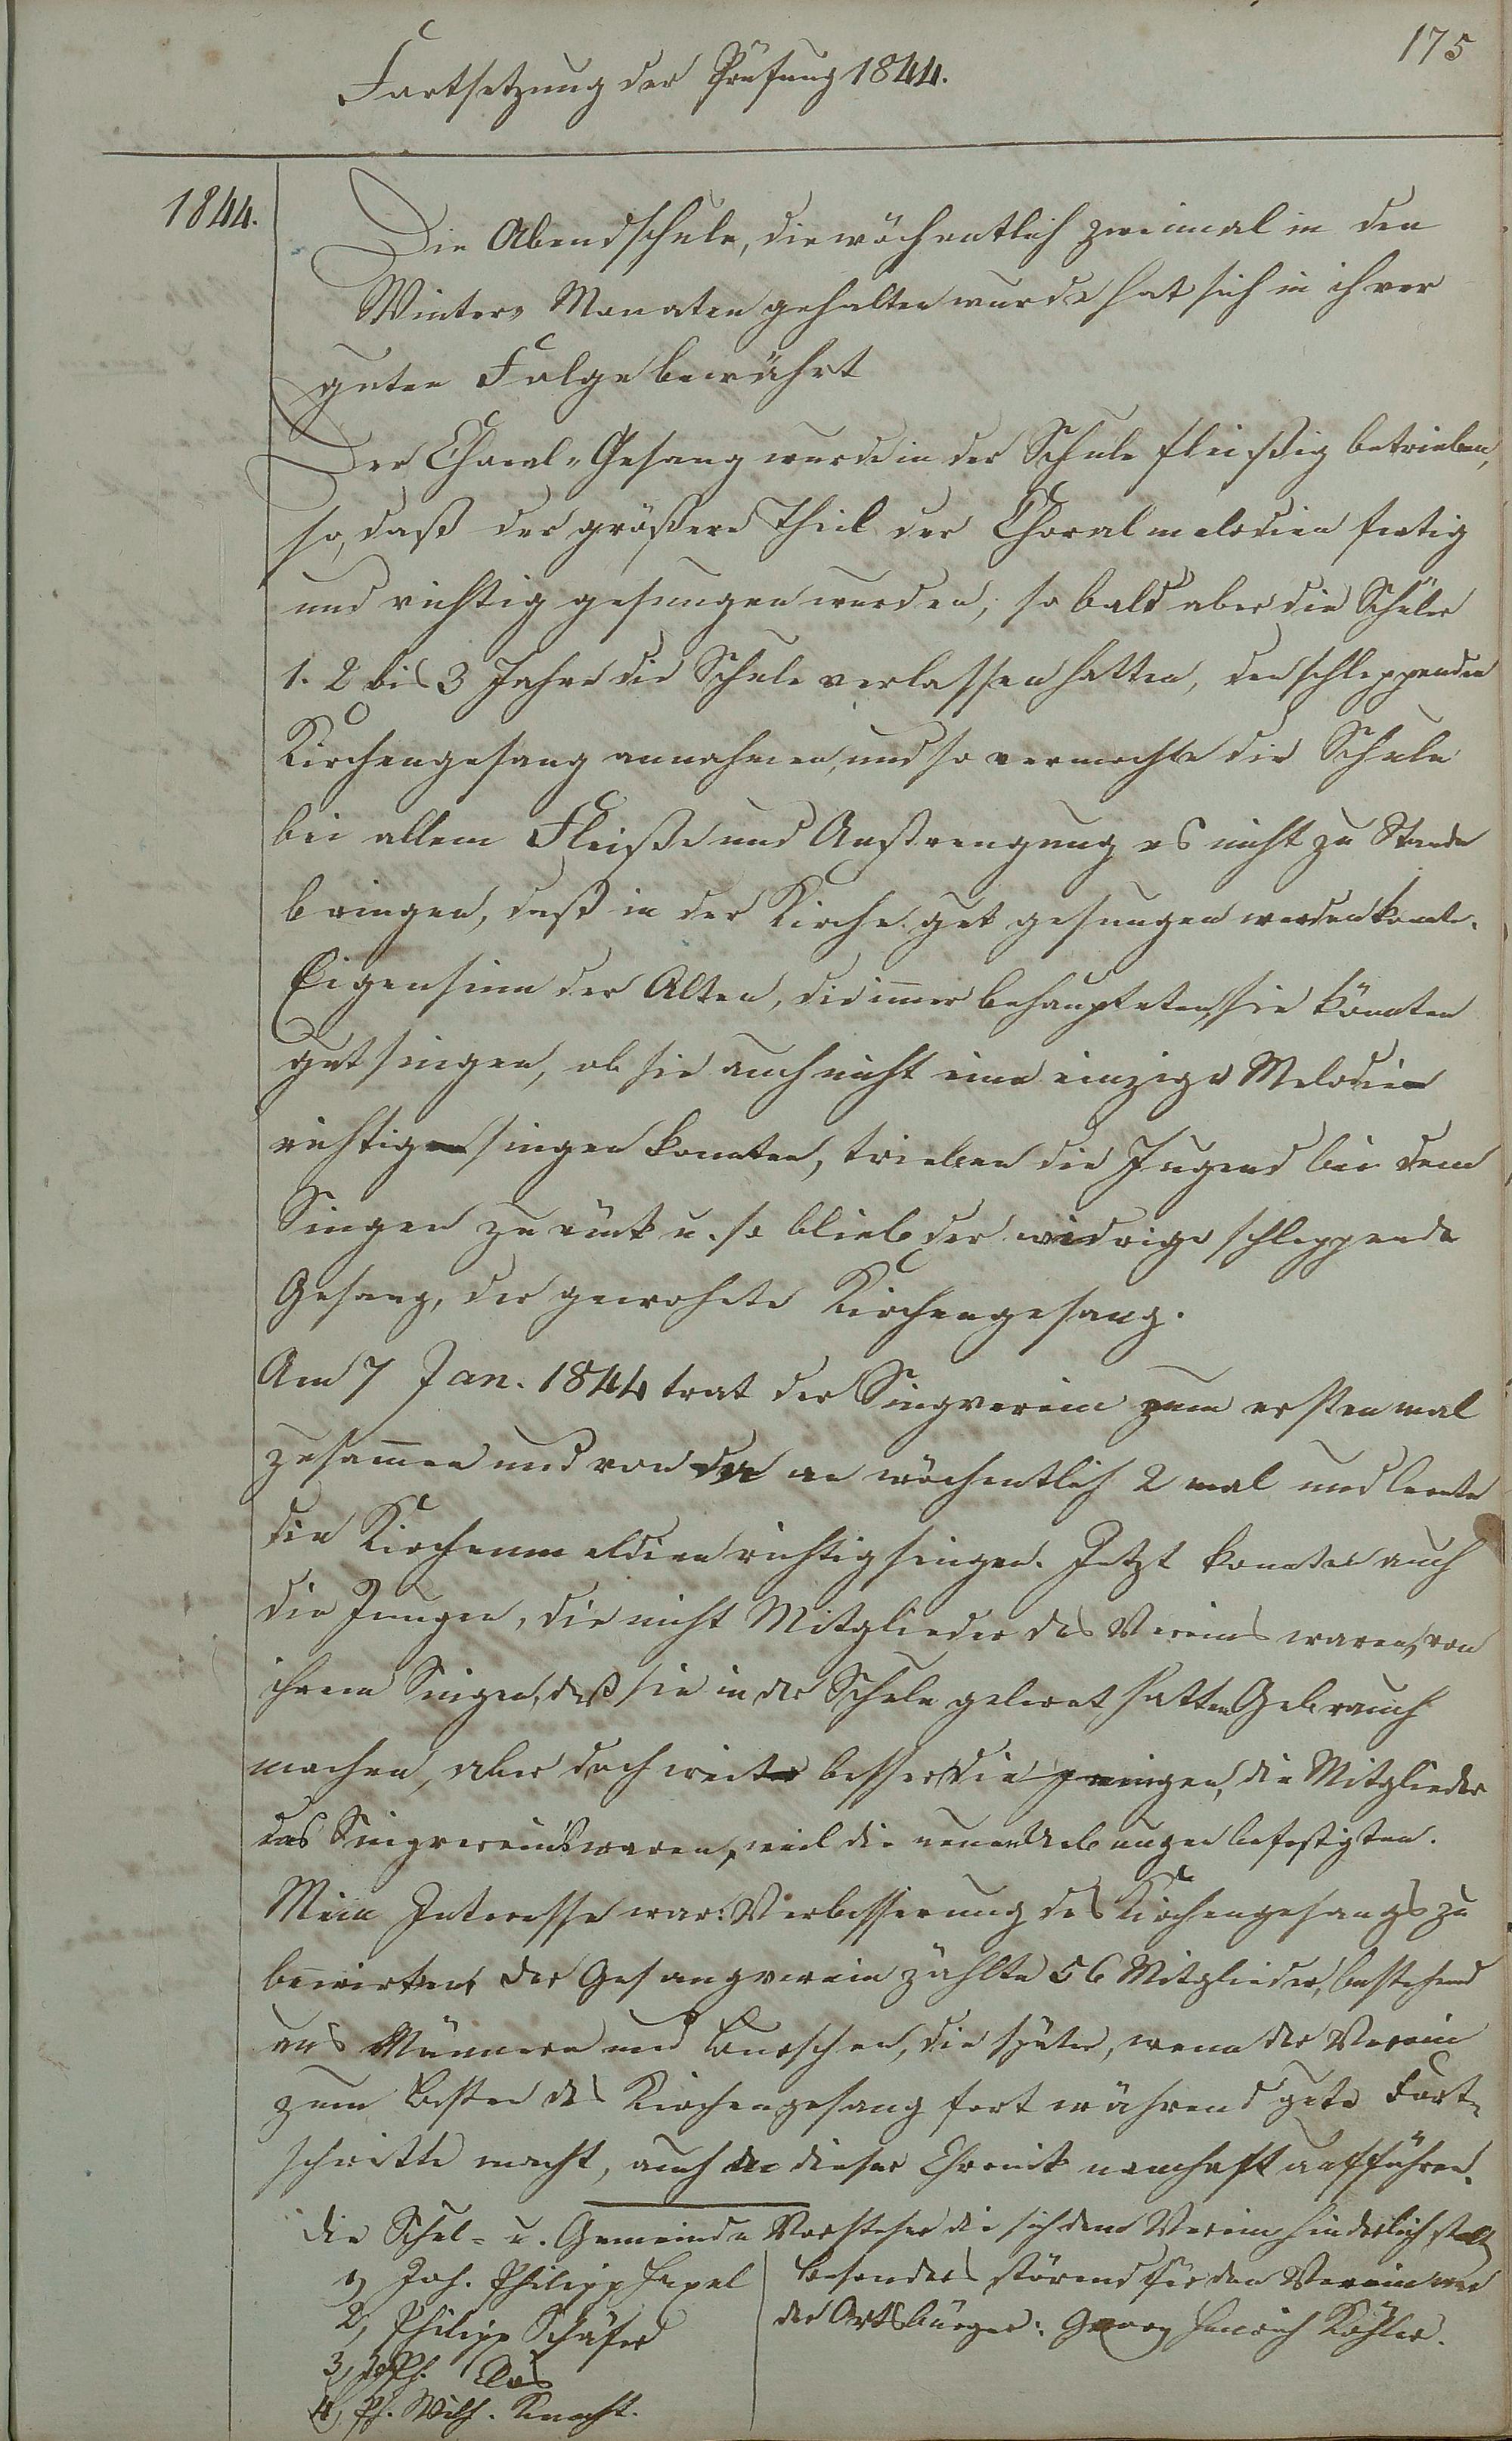 175
Fortsetzung der Prüfung 1844.
1844.
Die Abendschule, die wöchentlich zweimal in den
Winter- Monaten gehalten wurde hat sich in ihrer
guten Folge bewährt
Der Choral-Gesang wurde in der Schule fleißig betrieben,
so, daß der größere Theil der Choralmelodien fertig
und richtig gesungen wurden; so bald aber die Schüler
1. 2 bis 3 Jahre die Schule verlassen hatten, den schleppenden
Kirchengesang annahmen, und so vermochte die Schule
bei allem Fleiße und Anstrengung es nicht zu Stande
bringen, daß in der Kirche gut gesungen werden konnte.
Eigensinn der Alten, die immer behaupteten, sie könnten
gut singen, ob sie auch nicht eine einzige Melodie
richtig singen konnten, trieben die Jugend bei dem
Singen zurück u. so blieb der widrige schleppende
Gesang, der gewohnte Kirchengesang.
Am 7 Jan. 1844 trat der Singverein zum ersten mal
zusammen und von da an wöchentlich 2 mal und lernte
die Kirchenmeldien richtig singen. Jetzt konnten auch
die Jungen, die nicht Mitglieder des Vereins waren, von
ihrem Singen, daß sie in der Schule gelernt hatten Gebrauch
machen, aber doch weit besser die jenigen, die Mitglieder
des Singvereins waren, weil die neuen Uebungen befestigten.
Mein Interesse war: Verbesserung des Kirchengesangs zu
bewirken. Der Gesangverein zählte 56 Mitglieder, bestehend
aus Männern und Burschen, die später, wenn der Verein
zum Besten des Kirchengesang fort während gute Fort-
schritte macht, auch in dieser Chronik namhaft aufführen.
Die Schul- u. Gemeinde Vorsteher die sich dem Verein hinderlich stellt
1, Joh. Philipp
2, Philipp Schäfer
3, Jos
4, Ph. Wilh. Knecht.
besonders störend für den Verein war
der Ortsbürger: Georg Heinrich Köhler.